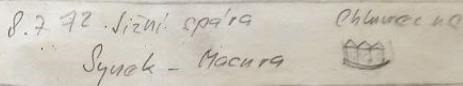 8.7.72 Jižní spára Chlumec na
Synek - Macura